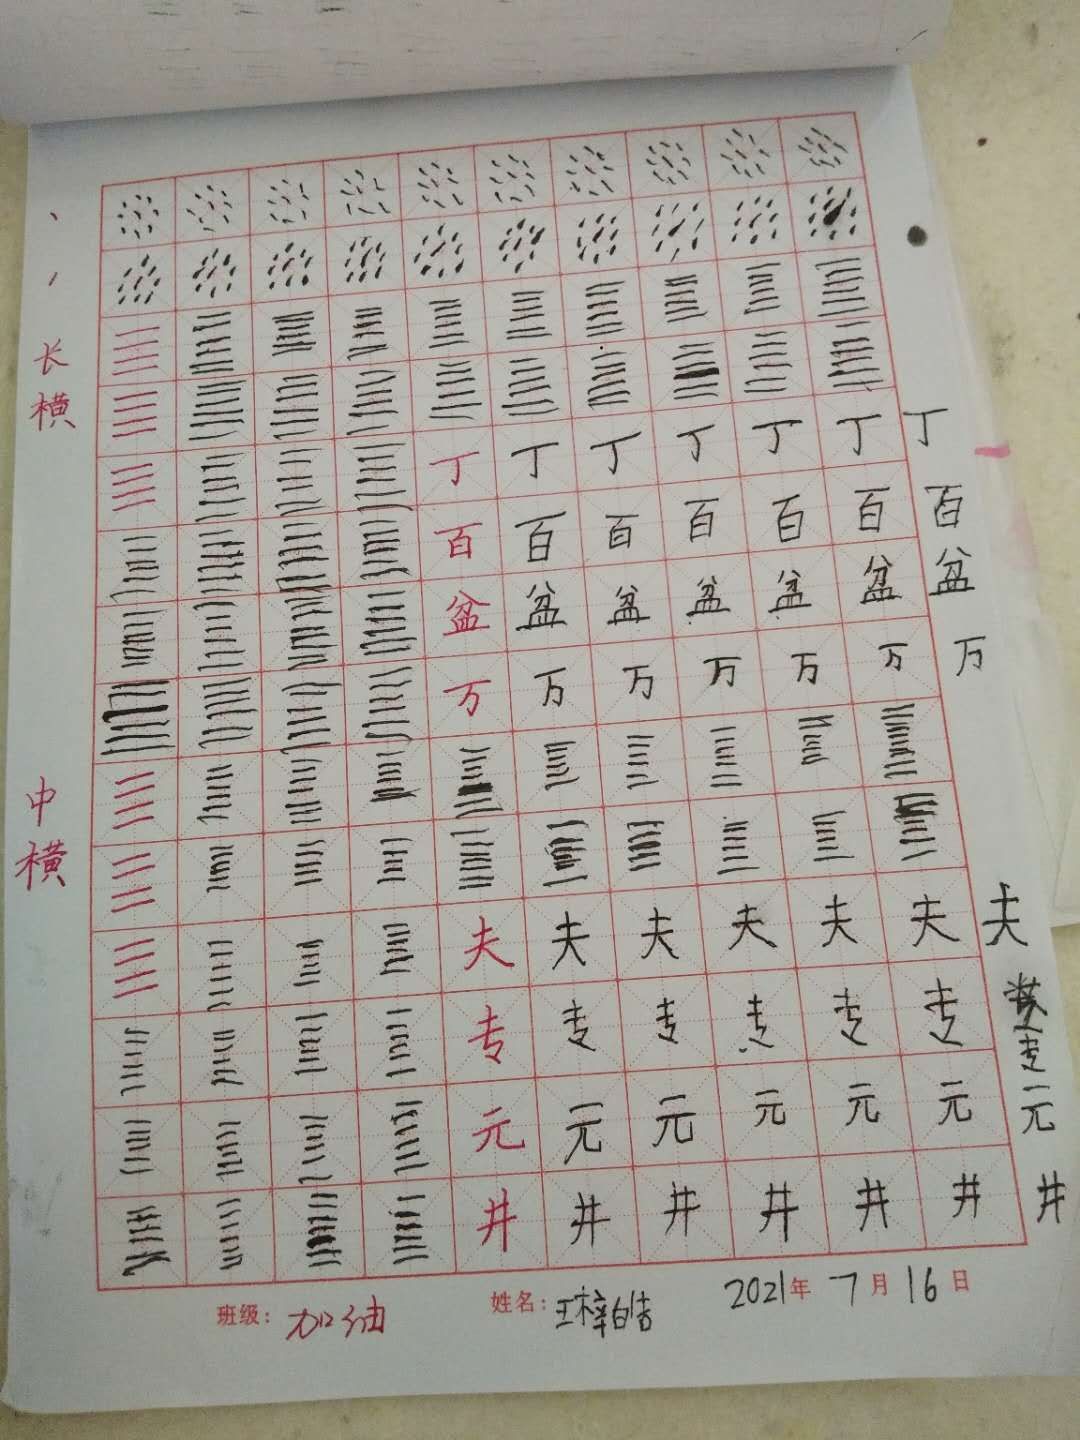 、
长
横
丁 丁 丁 丁 丁 丁 丁
百 百 百 百 百 百 百
盆 盆 盆 盆 盆 盆 盆
万 万 万 万 万 万 万
中
横
夫 夫 夫 夫 夫 夫 夫
专 专 专 专 专 专 专
元 元 元 元 元 元 元
井 井 井 井 井 井 井
班级: 加油 姓名: 王梓皓 2021年 7月 16日